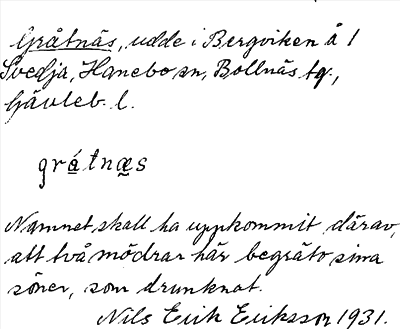 Gråtnäs, udde i Bergviken å 1
Svedja, Hanebo sn, Bollnäs tg.,
Gävleb. l.
gråtnæs
Namnet skall ha uppkommit därav,
att två mödrar här begråtv sina
söner, som drunknat.
Nils Erik Eriksson 1931.